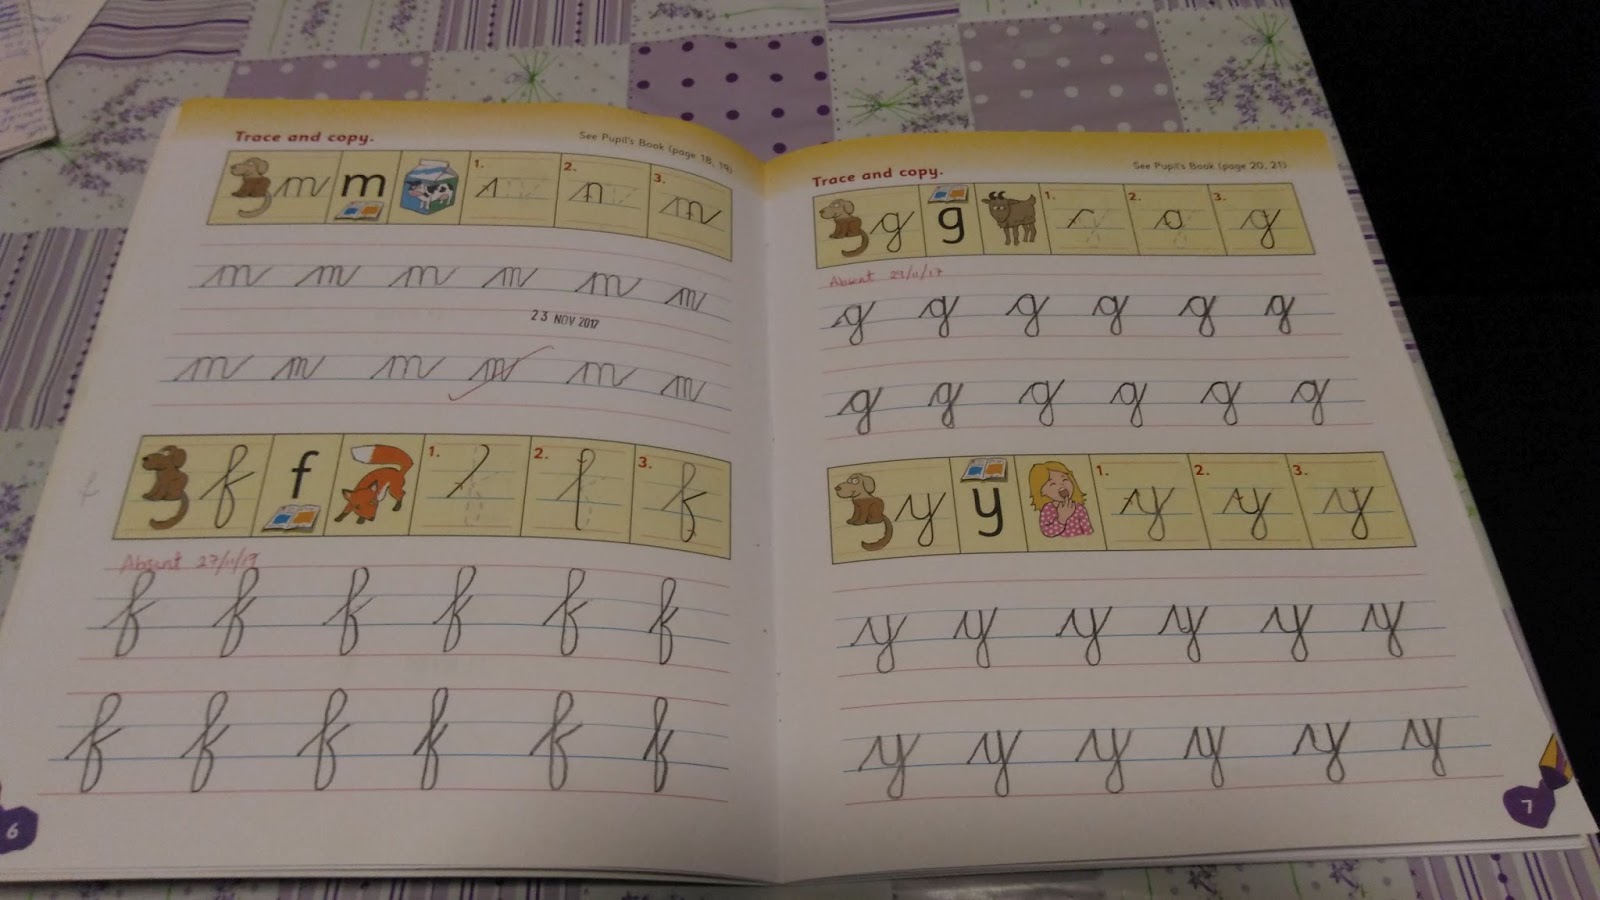 Trace and copy.
See Pupil's Book (page 18, 19)
m m 1. 2. 3. m
m m m m m m
23 NOV 2017
m m m m m m
f f 1. 2. 3. f
Absent 27/11/17
f f f f f f
f f f f f f
6
Trace and copy.
See Pupil's Book (page 20, 21)
g g 1. 2. 3. g
Absent 27/11/17
g g g g g g
g g g g g g
y y 1. y 2. y 3. y
y y y y y y
y y y y y y
7